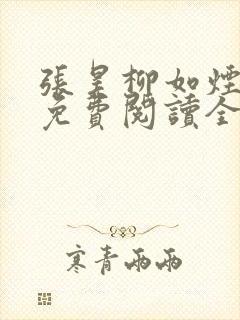 張昊柳如煙
免費閱讀全
寒青雨雨